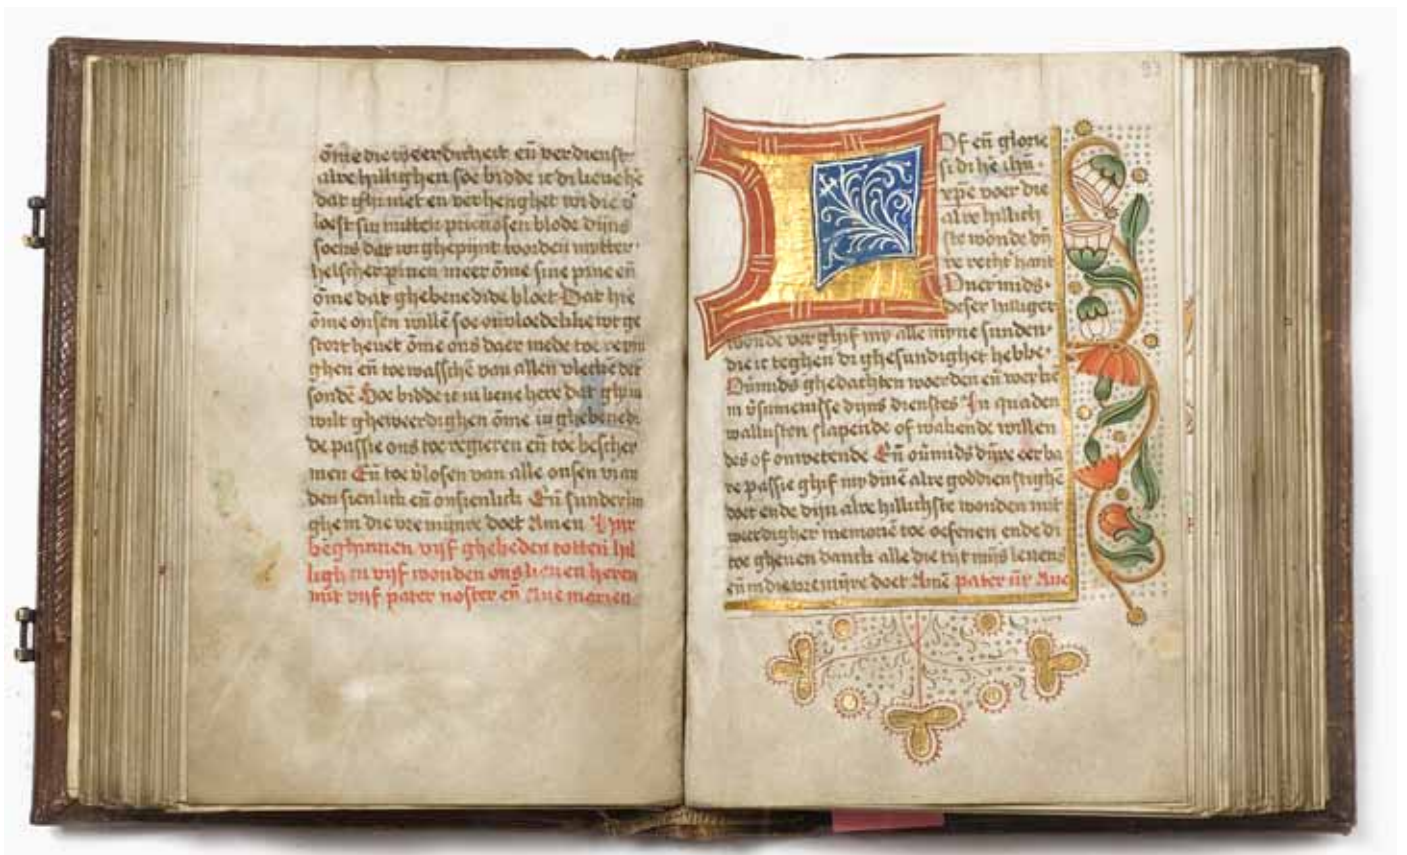 ōme die weerdicheit eñ verdienste
alre hillighen soe bidde ic di lieue he
dat ghi niet en verhenghet wi die v
loest sin mitten preciosen blode dijns
soens dat wi ghepijnt woorden mitter
helscher pinen meer ōme sine pine eñ
ōme dat ghebenedide bloet Dat hie
ōme onsen willē soe ouvloedelike wt ge
stort heuet ōme ons daer mede toe reyni
ghen eñ toe wasschē van allen vleckē der
sondē Soe bidde ic iu lieue here dat ghi iu
wilt gheweerdighen ōme iu ghebenedi
de passie ons toe regieren eñ toe bescher
men Eñ toe v̄losen van alle onsen vian
den sienlick eñ onsienlick Eñ sunderin
ghe in die vre mijnre doet Amen Hyr
beghinnen vijf ghebeden totten hil
lighen vijf wonden ons lieuen heren
mit vijf pater noster eñ Aue marien
93
Lof eñ glorie
si di he ihū
xp̄e voer die
alre hillich
ste wonde dij
re rechť hant
Duermids
deser hilliger
wonde verghif my alle myne sunden
die ic teghen di ghesundighet hebbe
Ou̅mids ghedachten woerden eñ werkē
in v̄sumenisse dijns dienstes In quaden
wallusten slapende of wakende willen
des of onwetende Eñ ou̅mids dijre eerba
re passie ghif my dinē alre goddienstighē
doet ende dijn alre hillichste wonden mit
weerdigher memoriē toe oefenen ende di
toe gheuen danck alle die tijt mijns leuens
eñ in die vre mijre doet Amē pater n̄r Aue